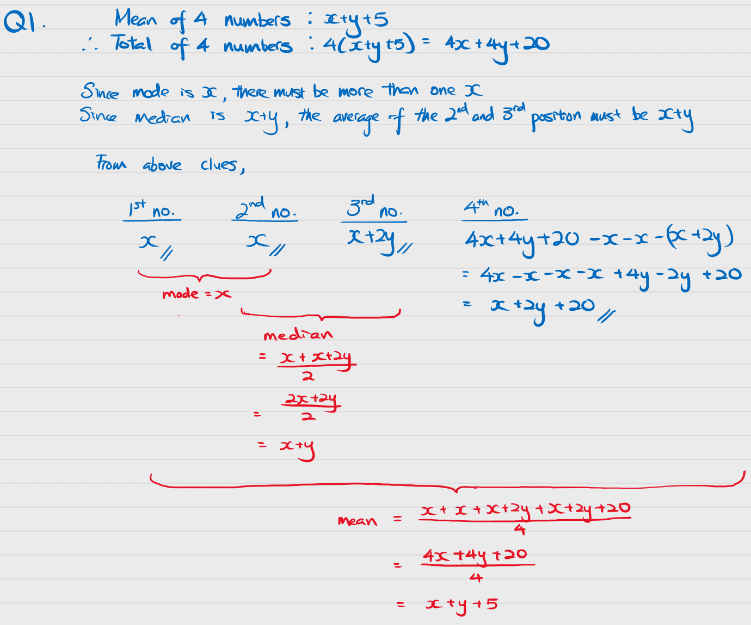 Q1. Mean of 4 numbers : x+y+5
∴ Total of 4 numbers : 4(x+y+5) = 4x+4y+20
Since mode is x, there must be more than one x
Since median is x+y, the average of the 2nd and 3rd position must be x+y
From above clues,
1st no. 2nd no. 3rd no. 4th no.
x // x // x+2y // 4x+4y+20 -x-x-(x+2y)
= 4x-x-x-x +4y-2y +20
mode = x
= x+2y+20 //
median
= x + x+2y / 2
= 2x+2y / 2
= x+y
mean = x + x + x+2y + x+2y+20 / 4
= 4x+4y+20 / 4
= x+y+5